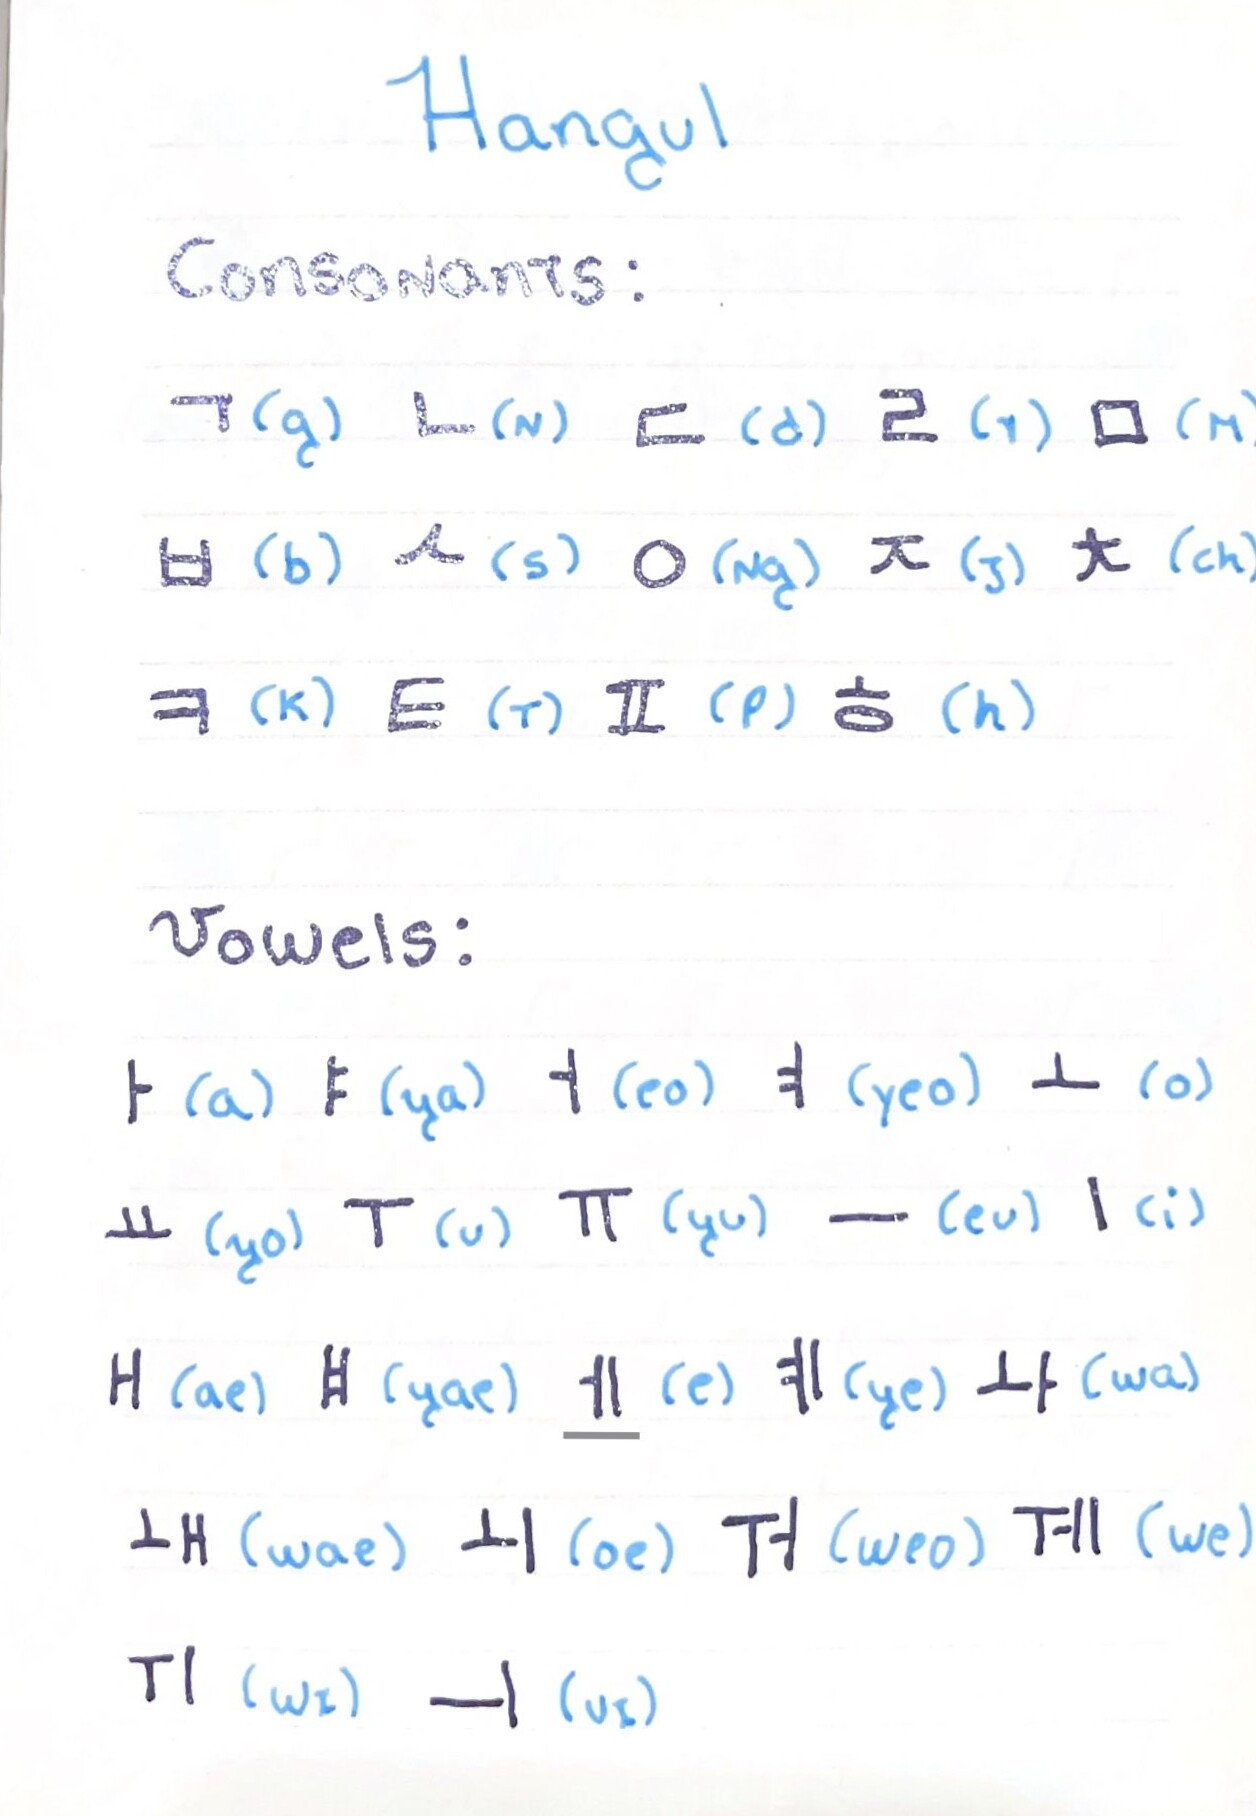 Hangul
Consonants:
ㄱ (g) ㄴ (N) ㄷ (d) ㄹ (r) ㅁ (M)
ㅂ (b) ㅅ (s) ㅇ (Ng) ㅈ (j) ㅊ (ch)
ㅋ (K) ㅌ (T) ㅍ (P) ㅎ (h)
Vowels:
ㅏ (a) ㅑ (ya) ㅓ (eo) ㅕ (yeo) ㅗ (o)
ㅛ (yo) ㅜ (u) ㅠ (yu) ㅡ (eu) ㅣ (i)
ㅐ (ae) ㅒ (yae) ㅔ (e) ㅖ (ye) ㅘ (wa)
ㅙ (wae) ㅚ (oe) ㅝ (weo) ㅞ (we)
ㅟ (wI) ㅢ (uI)